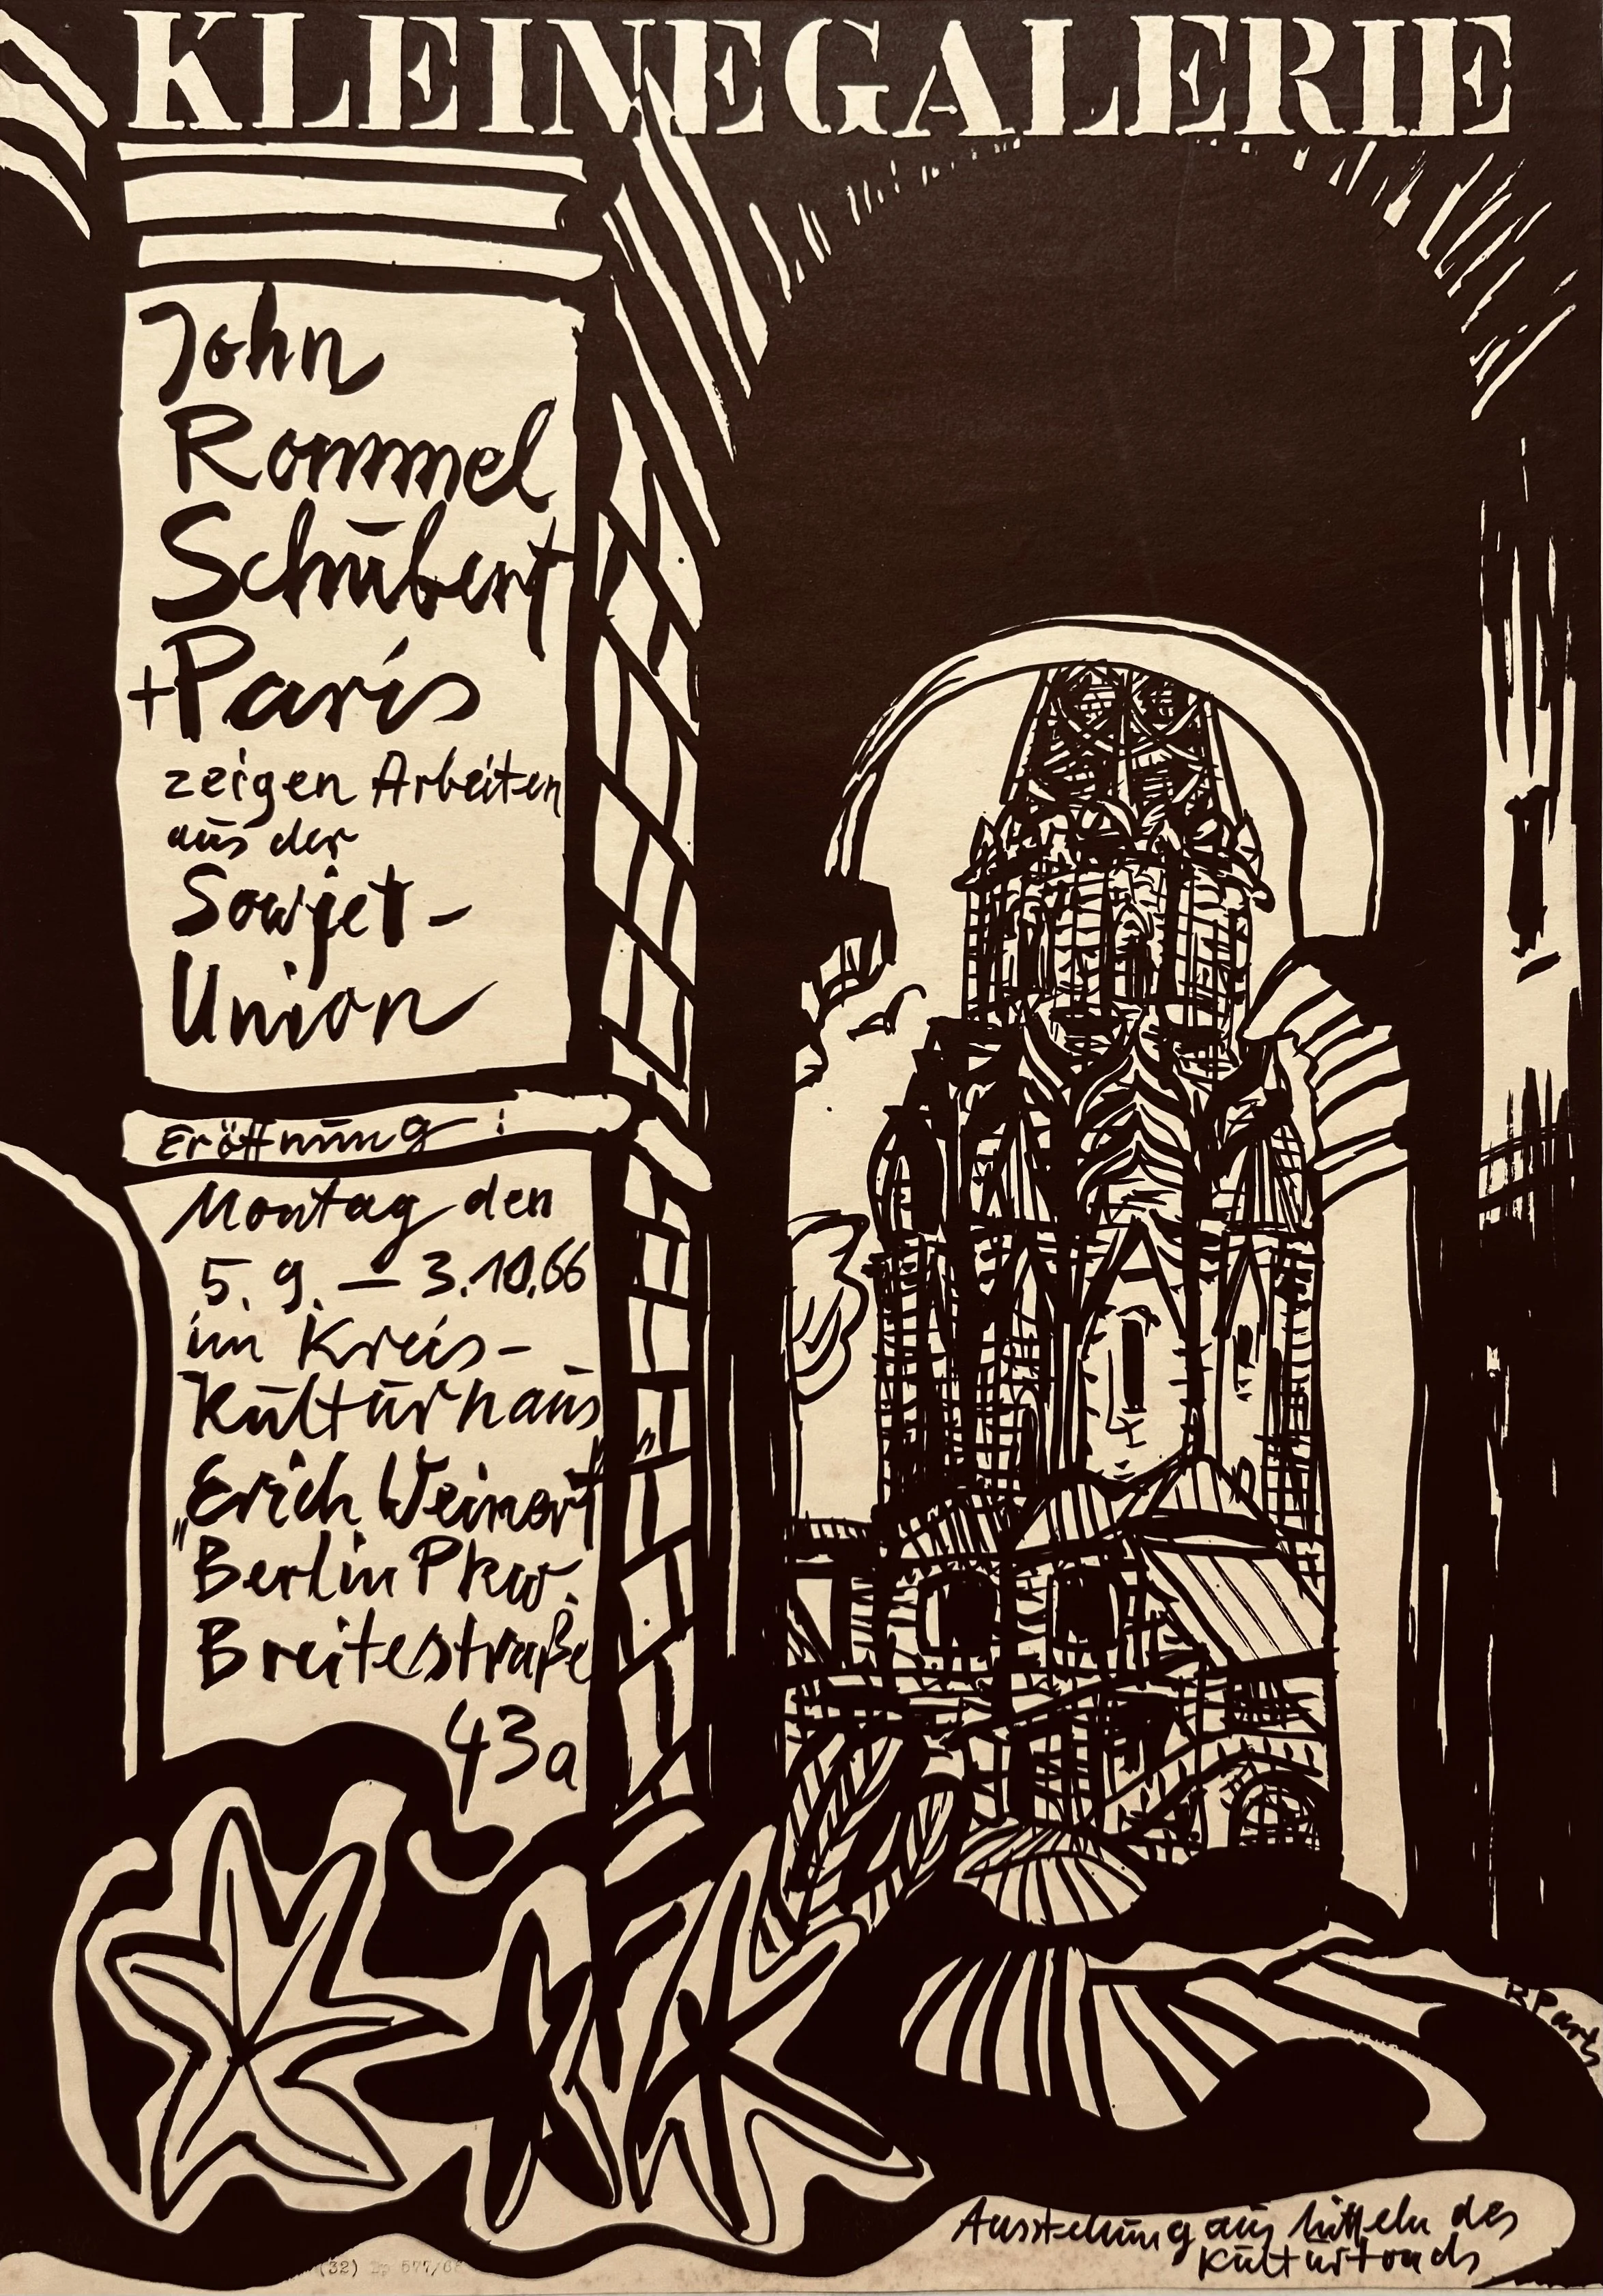 KLEINEGALERIE
John
Rommel
Schūbert
+Paris
zeigen Arbeiten
aūs der
Sowjet-
Union
Eröffnūng:
Montag den
5. 9. — 3.10.66
im Kreis-
Kūltūrhaūs
„Erich Weinert"
Berlin Pkw.
Breitestraße
43a
R Paris
Ausstellūng aūs Mitteln des
Kūltūrfonds
(32) Dp 577/66